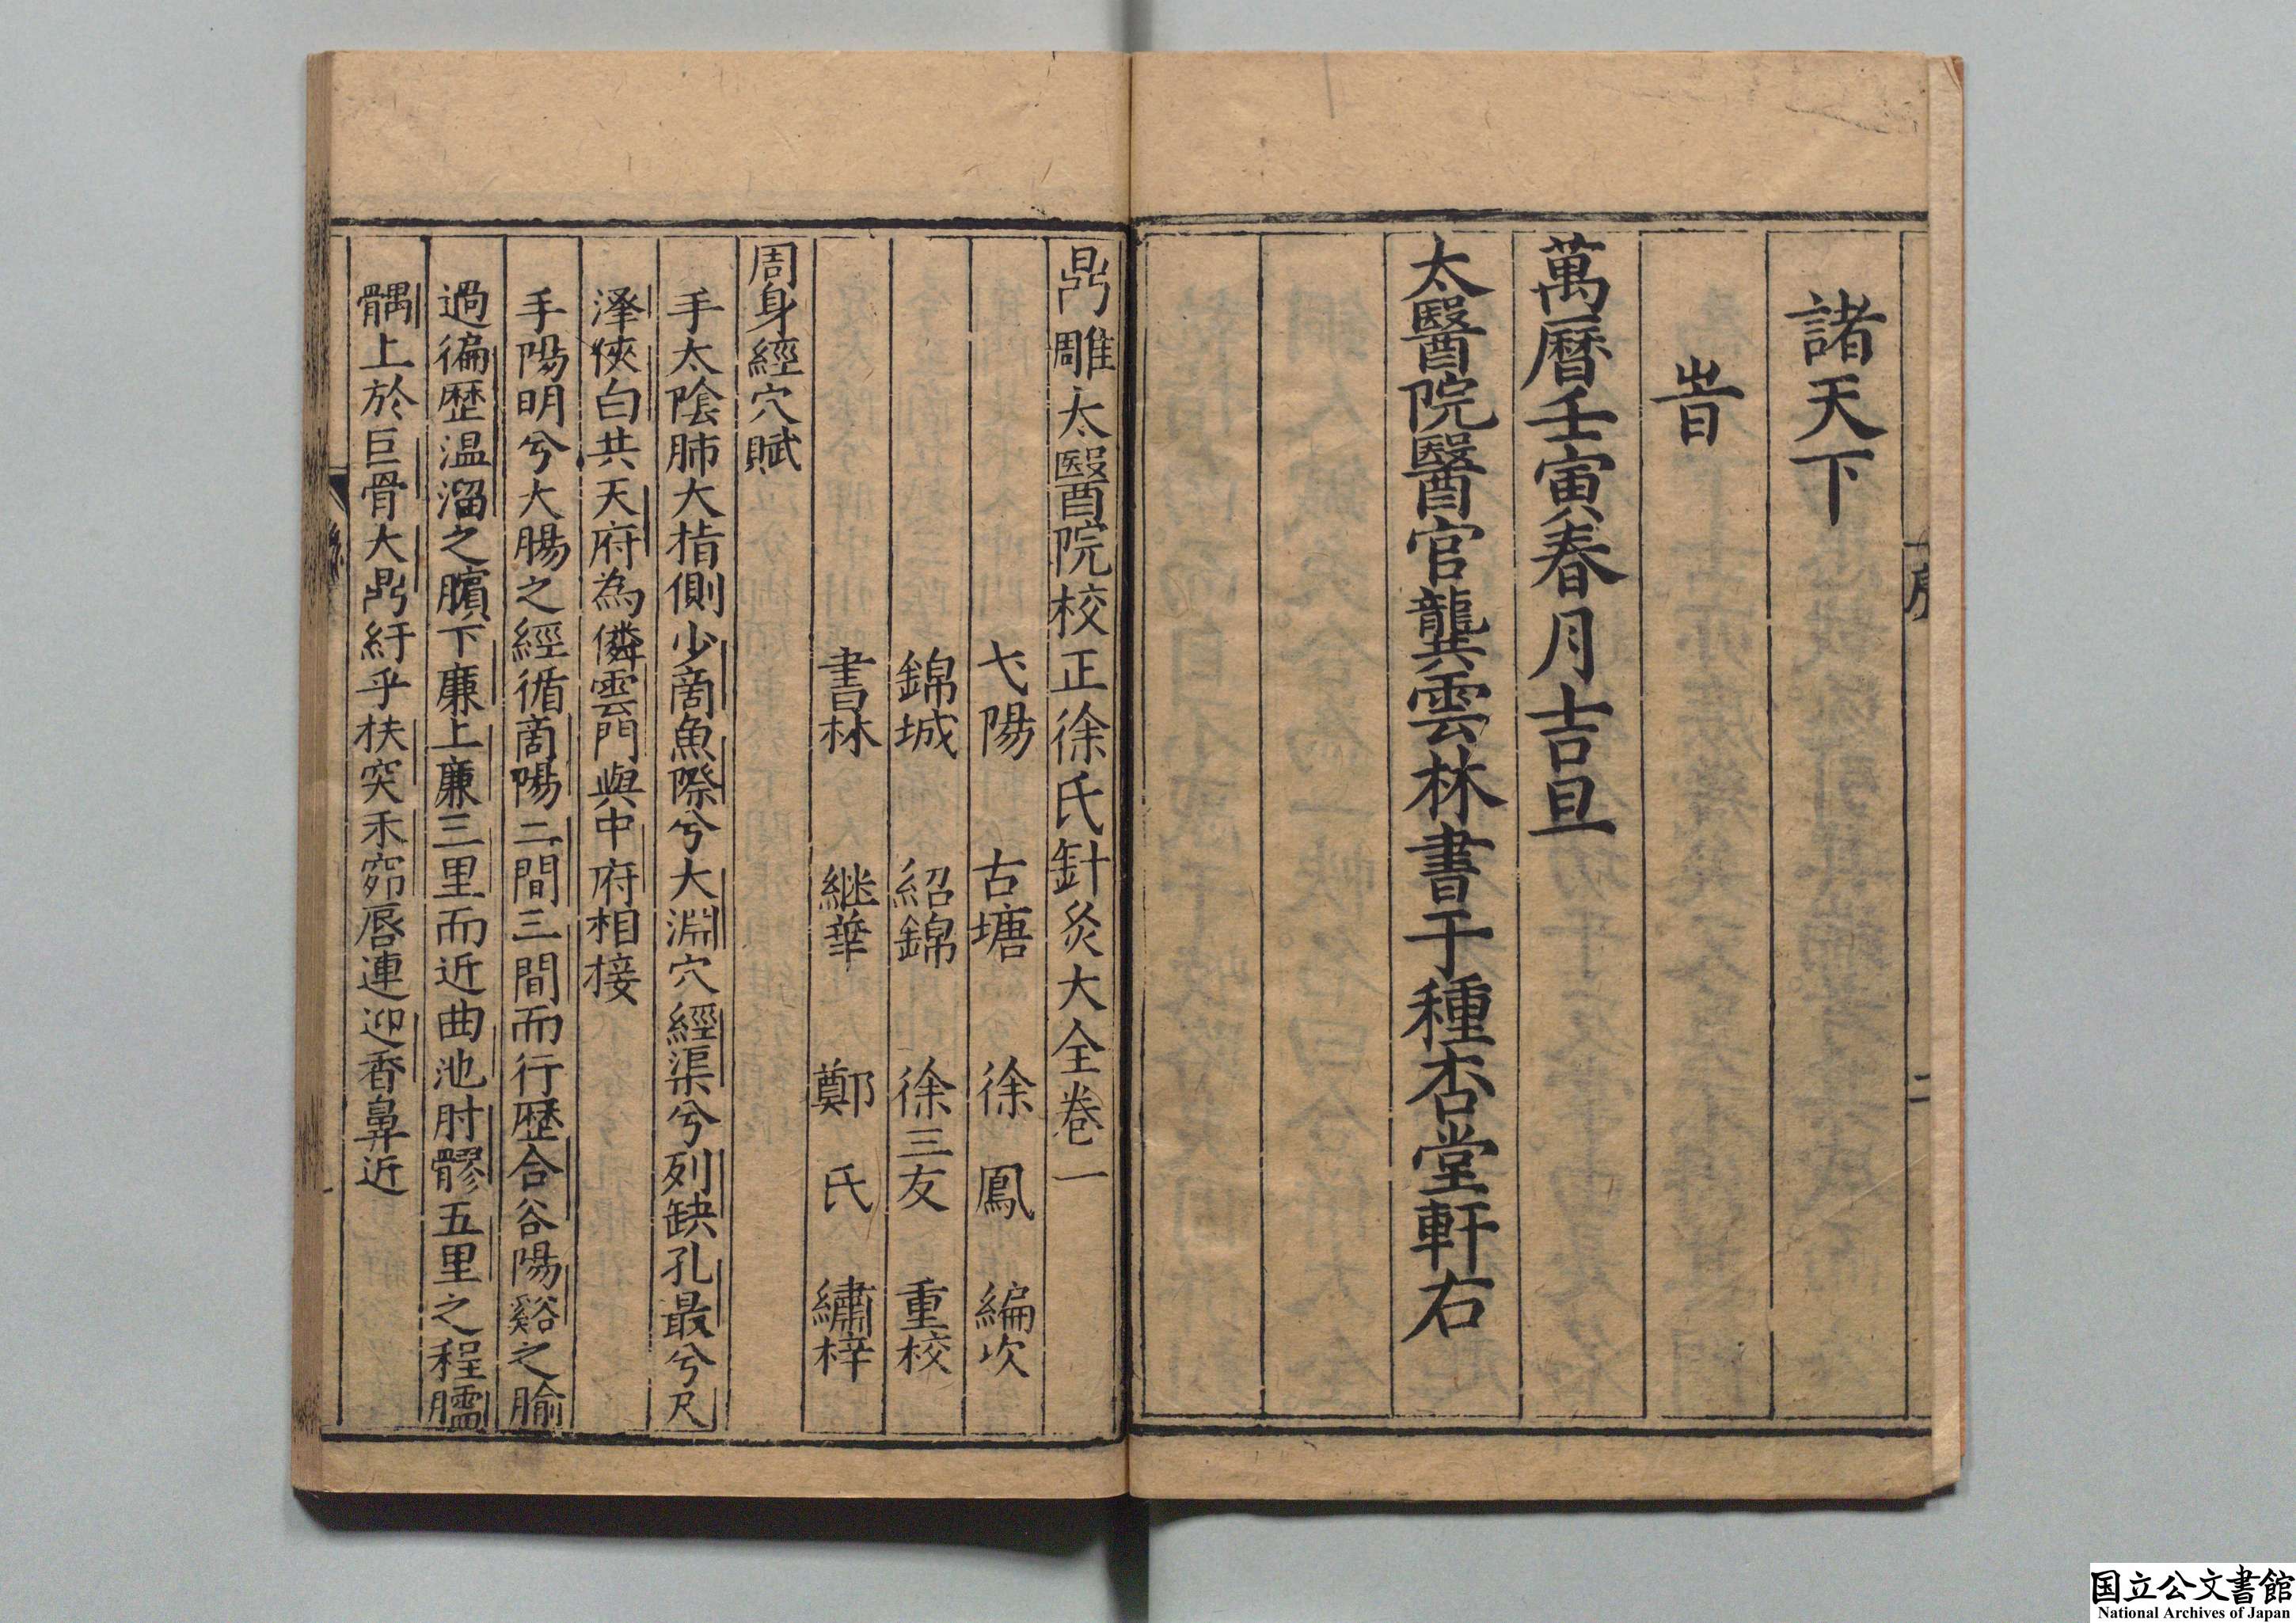 諸天下
旹
萬曆壬寅春月吉旦
太醫院醫官龔雲林書于種杏堂軒右
二
鼎雕太醫院校正徐氏針灸大全卷一
弋陽 古塘 徐鳳 編次
錦城 紹錦 徐三友 重校
書林 継華 鄭氏 繡梓
周身經穴賦
手太陰肺大指側少商魚際兮大淵穴經渠兮列缺孔最兮尺
澤俠白共天府為鄰雲門與中府相接
手陽明兮大腸之經循商陽二間三間而行歷合谷陽谿之腧
過徧歷温溜之臏下廉上廉三里而近曲池肘髎五里之程臑
髃上於巨骨大鼎紆乎扶突禾窌唇連迎香鼻近
国立公文書館
National Archives of Japan